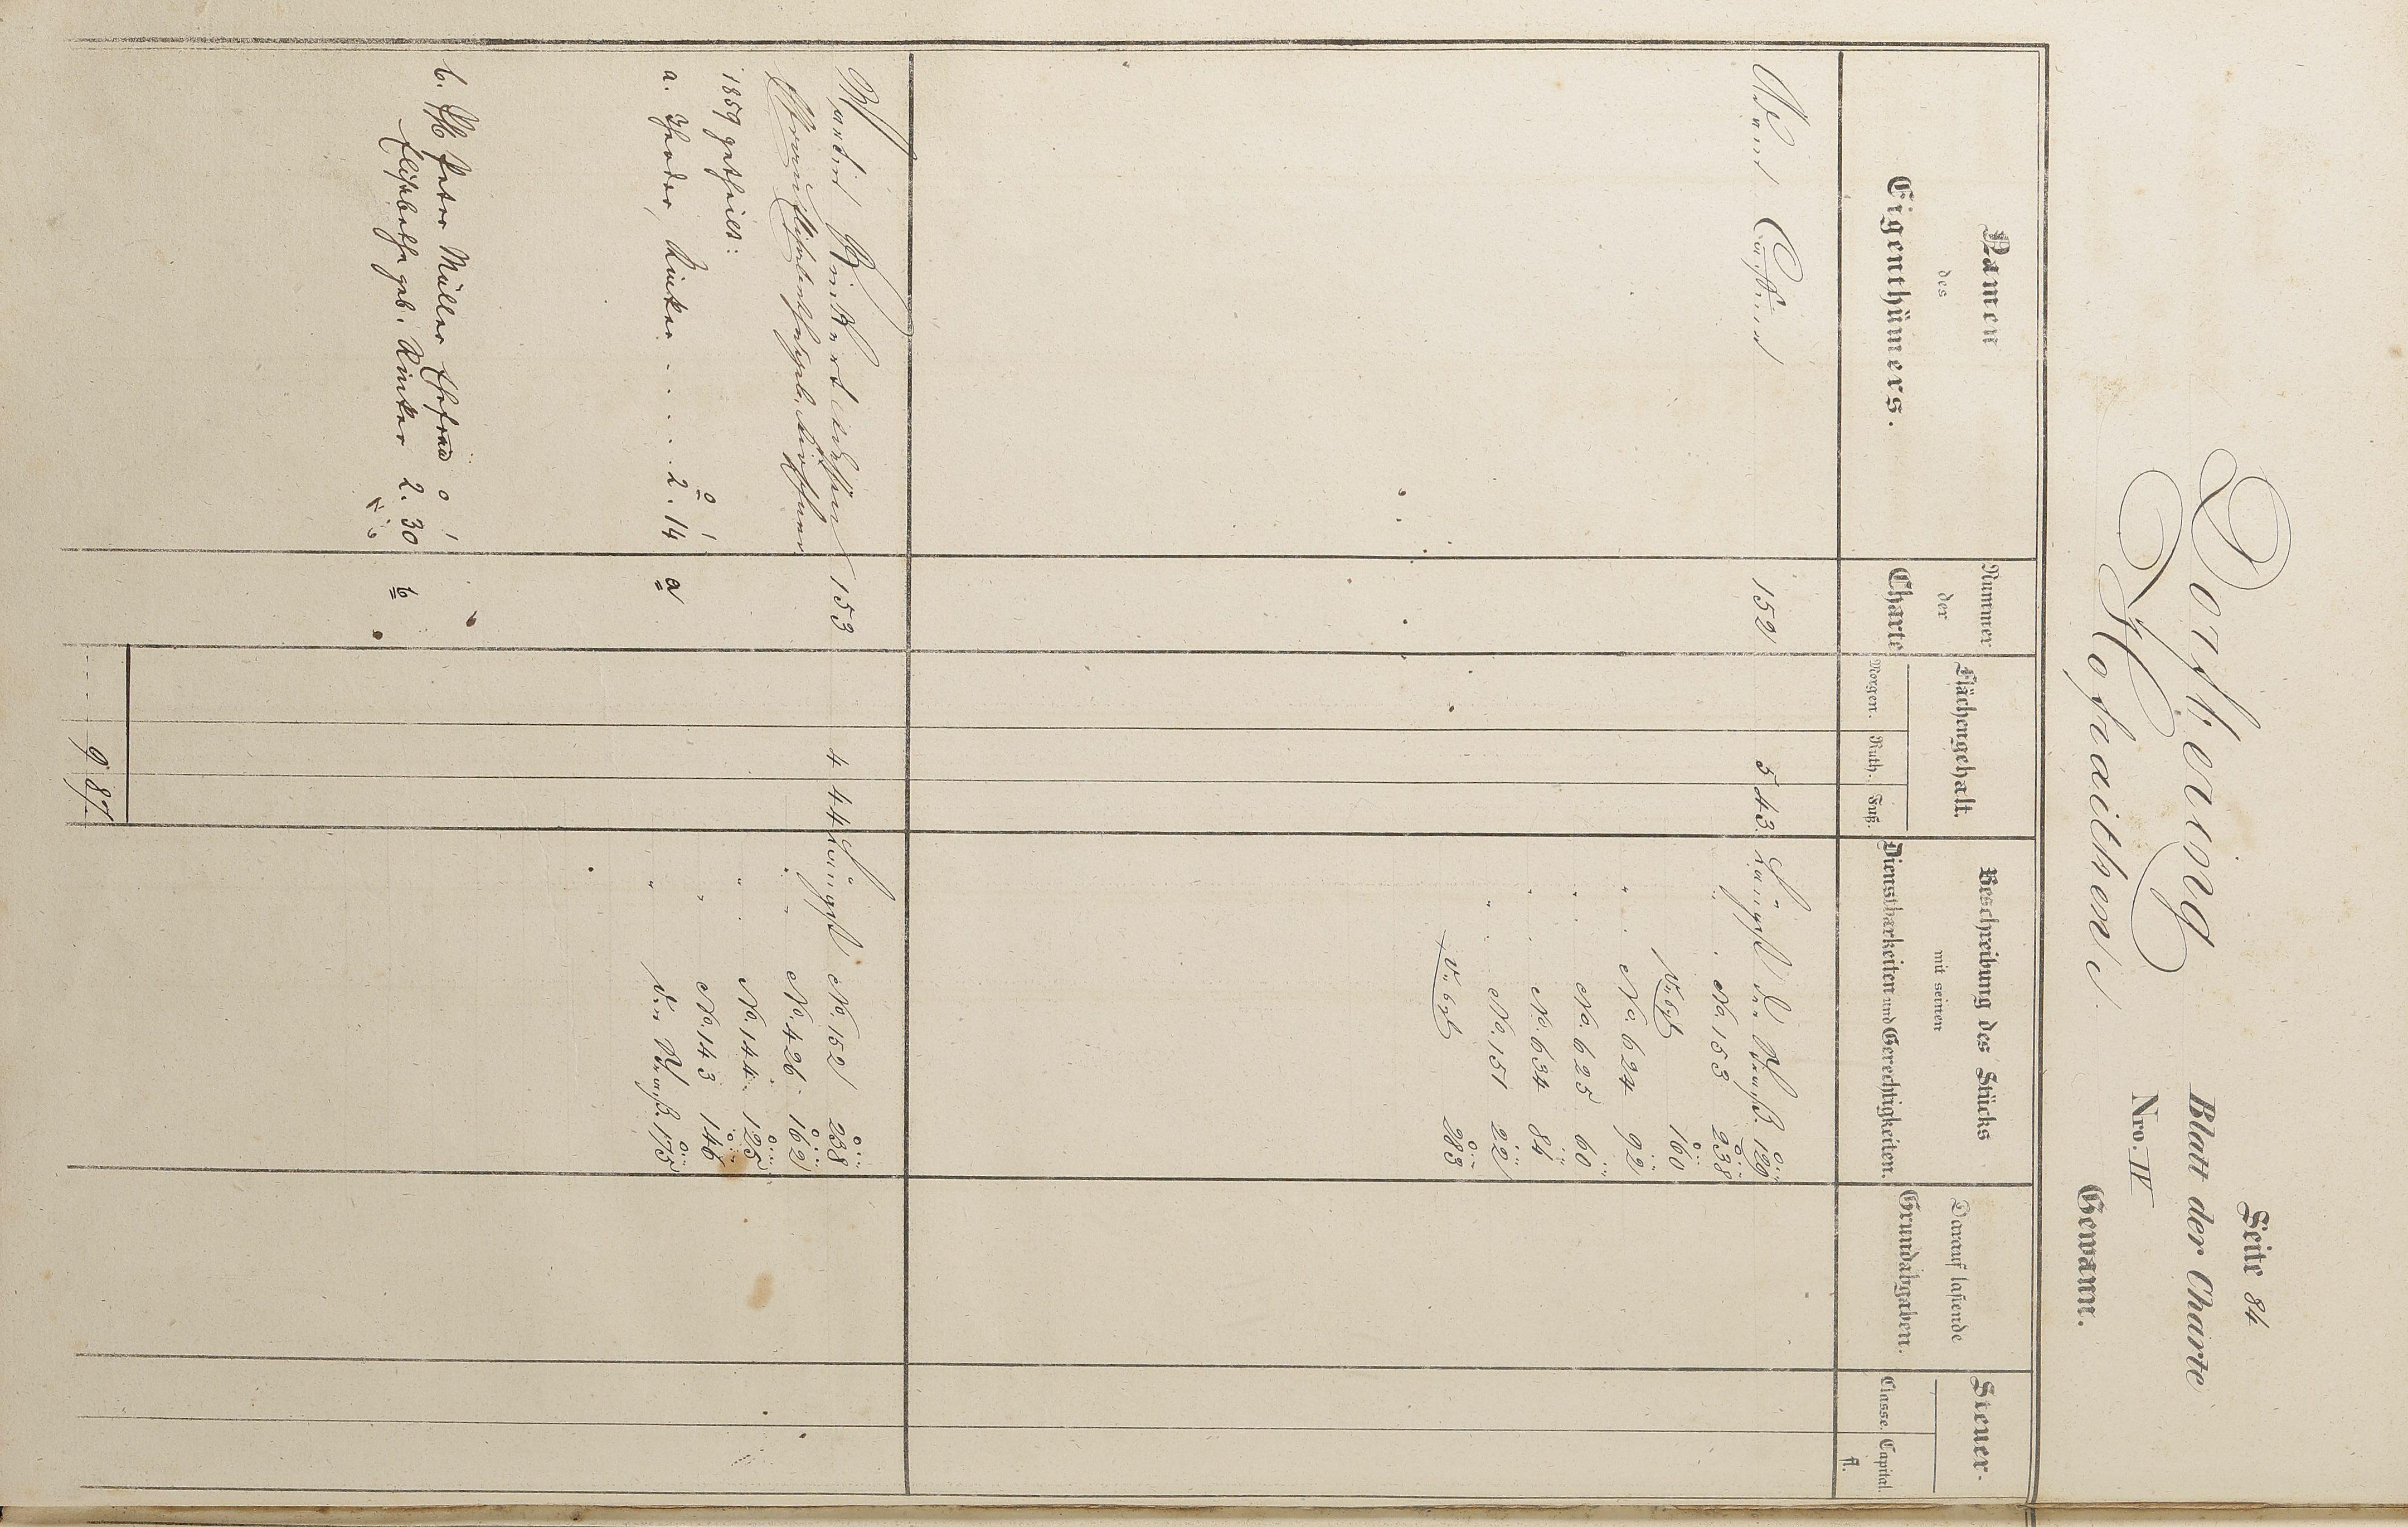 Seite 84
Blatt der Charte
Nro. IV
Gewann.
Hofraithen
Namen
des
Eigenthümers.
Nummer
der
Charte
Flächengehalt.
Morgen. Ruth. Fuß.
Beschreibung des Stücks
mit seinen
Dienstbarkeiten und Gerechtigkeiten.
Darauf lastende
Grundabgaben.
Steuer.
Classe. Capital.
fl.
Adam 152 5 43 Längst der Straß. 129
" No. 153 238
160
" No. 624 92
" No. 625 60
" No. 634 84
" No. 151 22
283
Martin 153 4 44 Längst No. 152 238
" No. 426 162
1859 getheilt: " No. 144 125
" No. 143 146
a. 2. 14 a " der Straß. 175
b. Peter Müller Ehefrau
Elisabetha geb. 2. 30 b
9 87